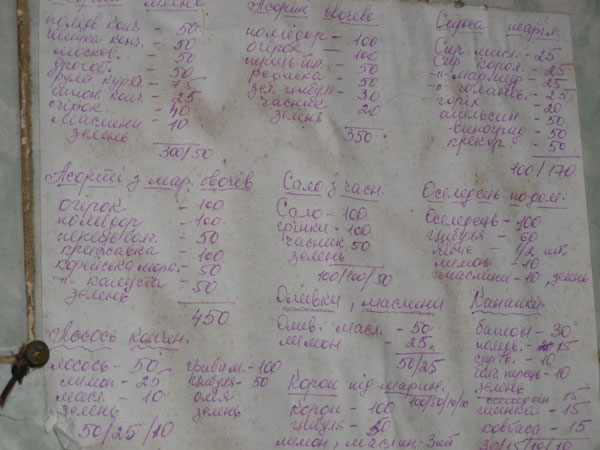 полуд. коп. - 50
шинка коп. - 50
москов. - 50
дрогоб. - 50
рулет кура - 75
лимон
огірок - 40
Маслини - 10
зелень
300/50
Асорті овочеве
помідор - 100
огірок - 100
перець бол. - 50
редиска - 50
зел. цибуля - 30
часник 20
зелень
350
Сирна
Сир - 25
Сир корол. - 25
-"- мармур - 25
-"- голанд. - 25
горіх - 20
апельсин - 50
виноград - 50
крекер - 50
100/170
Асорті з мар. овочів
огірок - 100
помідор - 100
перець болг. - 50
квашавка 100
Корейська морк. - 50
-"- капуста - 50
зелень
450
Сало з часн.
Сало - 100
грінки - 100
часник 50
зелень
100/100/50
Оселедець по дом.
Оселедець - 100
цибуля - 60
яйце 1/2 шт.
лимон - 10
маслини - 10, зелень
Оливки, маслини
Олив. масл. - 50
лимон - 25
50/25
Канапки
батон - 30
15
сир тв. - 10
бол. перець - 10
зелень
оселедець - 15
шинка - 15
ковбаса - 15
30/15/10/10
Лосось копчен.
лосось - 50
лимон - 25
масл. - 10
зелень
50/25/10
гриби м. - 100
цибуля - 50
олія
зелень
100/50/10/10
Короп під марин.
короп - 100
цибуля - 50
лимон, маслин - 3шт